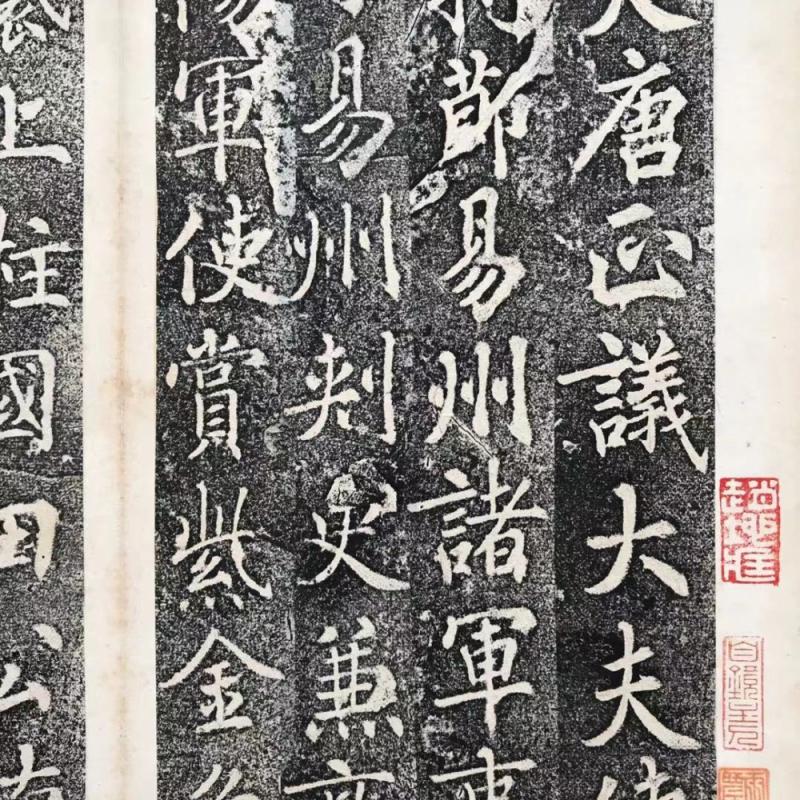 大唐正議大夫使
持節易州諸軍事
易州刺史兼
陽軍使賞紫金
上柱國田公